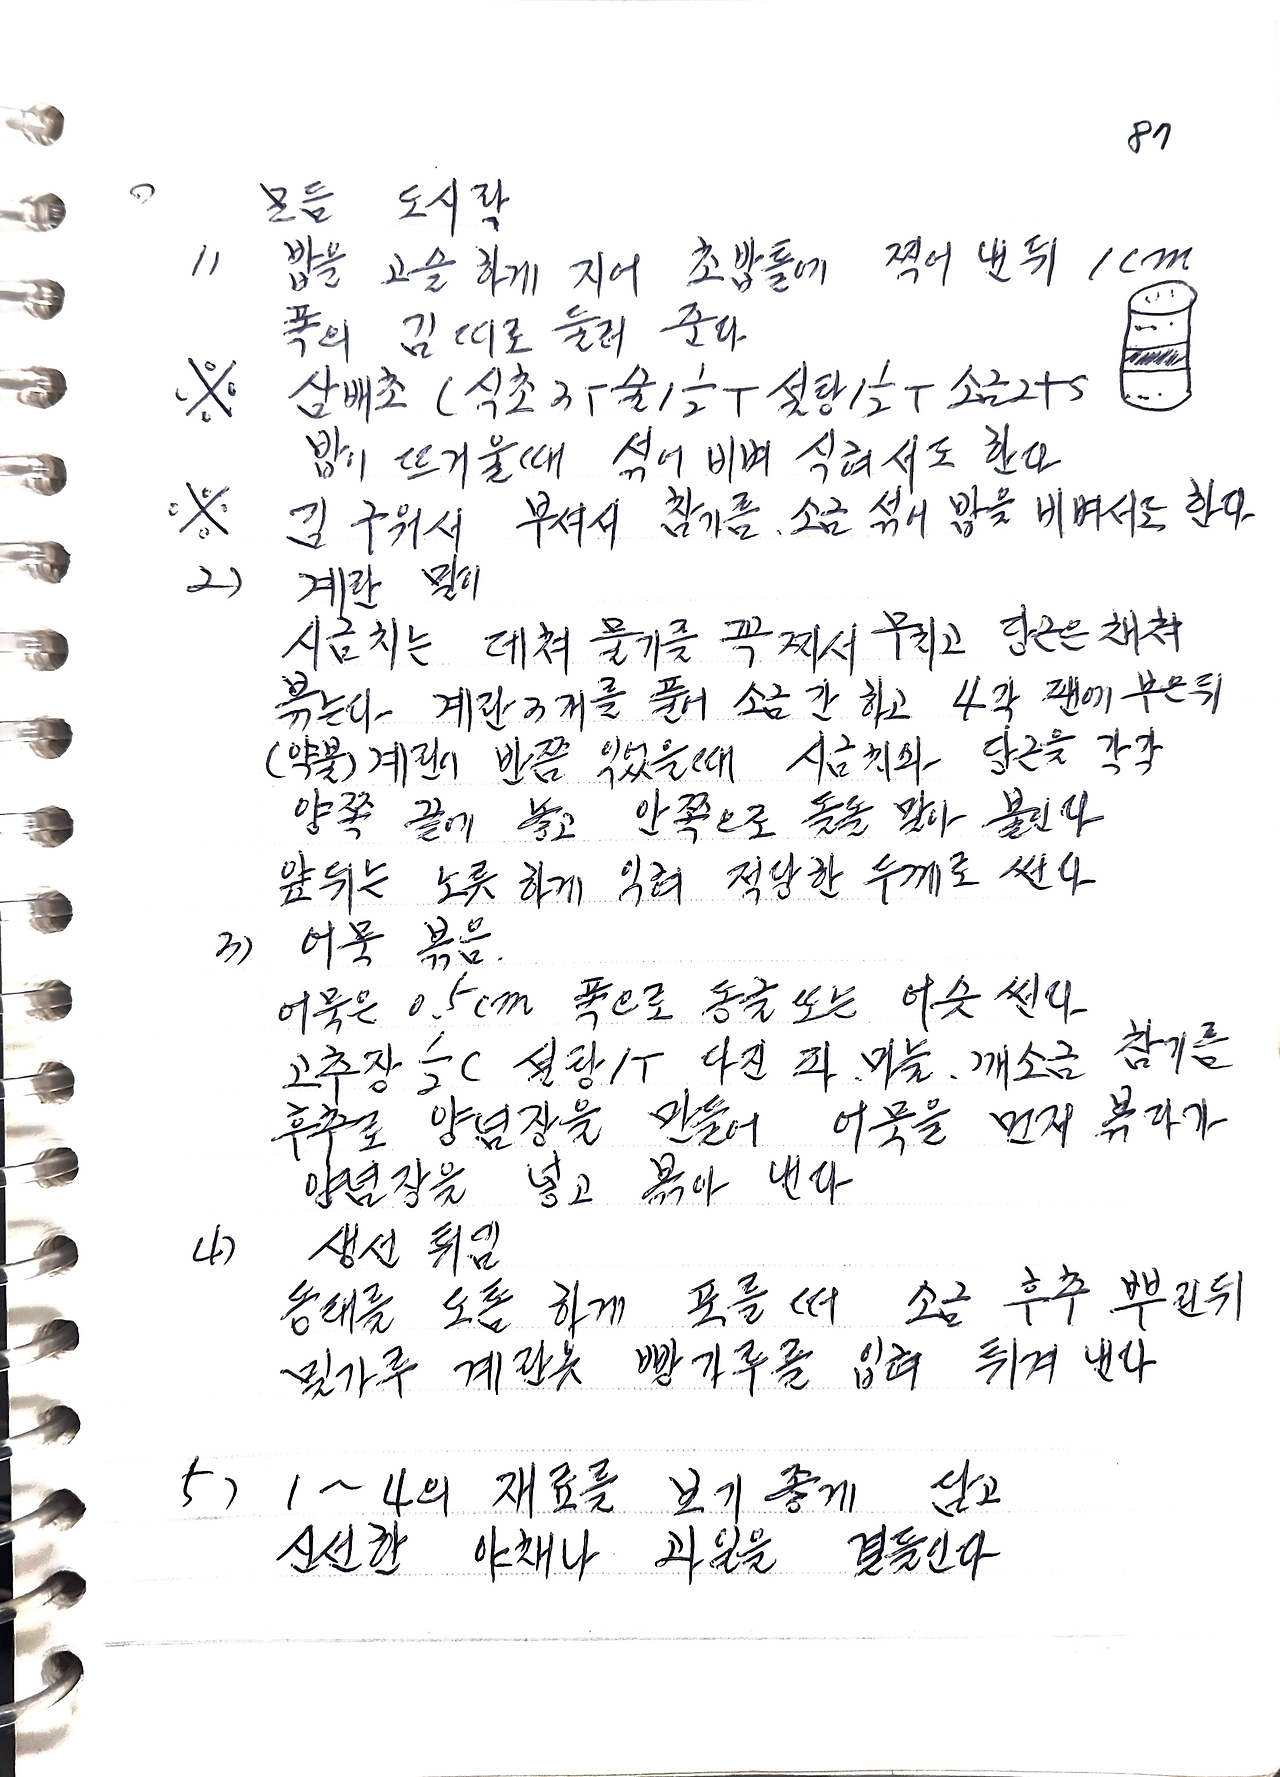 87
모듬 도시락
1) 밥을 고슬하게 지어 초밥틀에 찍어 낸뒤 1cm
폭의 김 띠로 둘러 준다
※ 삼배초 (식초3T 술1½T 설탕1½T 소금2ts
밥이 뜨거울때 섞어 비벼 식혀서도 한다
※ 김 구워서 부셔서 참기름.소금 섞어 밥을 비벼서도 한다
2) 계란 말이
시금치는 데쳐 물기를 꼭 짜서 무치고 당근은 채쳐
볶는다. 계란3개를 풀어 소금간 하고 4각 팬에 부은뒤
(약불) 계란이 반쯤 익었을때 시금치와 당근을 각각
양쪽 끝에 놓고 안쪽으로 돌돌 말아 붙인다
앞뒤는 노릇하게 익혀 적당한 두께로 썬다
3) 어묵 볶음.
어묵은 0.5cm 폭으로 동글 또는 어슷 썬다
고추장 ½C 설탕1T 다진 파.마늘.깨소금 참기름
후추로 양념장을 만들어 어묵을 먼저 볶다가
양념장을 넣고 볶아 낸다
4) 생선 튀김
동태를 도톰 하게 포를 떠 소금 후추 뿌린뒤
밀가루 계란옷 빵가루를 입혀 튀겨 낸다
5) 1~4의 재료를 보기 좋게 담고
신선한 야채나 과일을 곁들인다